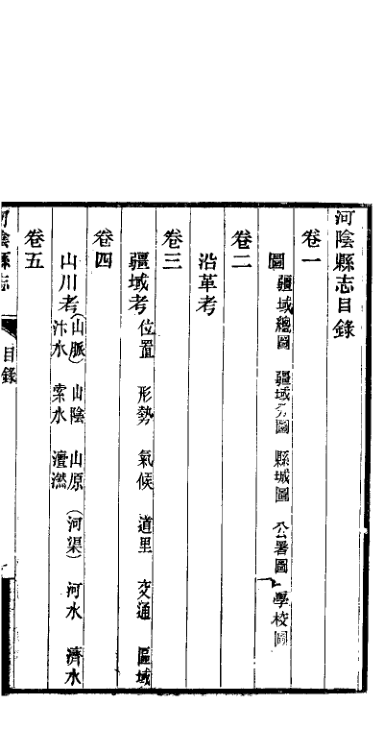 河陰縣志目錄
卷一
圖 疆域總圖 疆域分圖 縣城圖 公署圖 學校圖
卷二
沿革考
卷三
疆域考 位置 形勢 氣候 道里 交通 區域
卷四
山川考 (山脈) 山陰 山原 (河渠) 河水 濟水
汴水 索水
卷五
河陰縣志 目錄